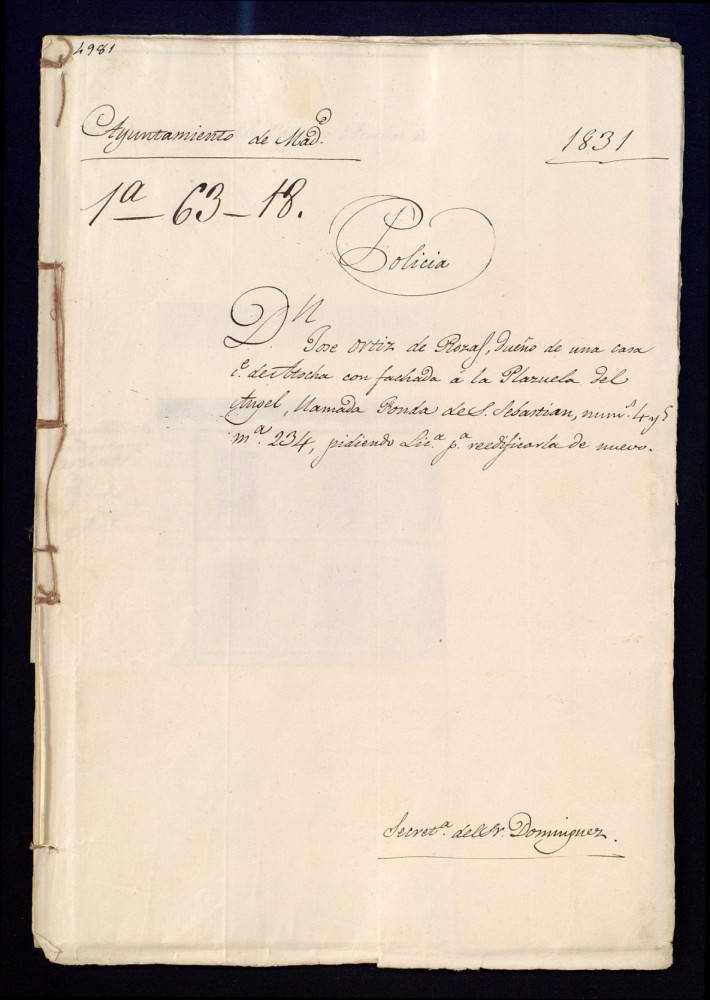 4981
Ayuntamiento de Mad.ᵉ
1831
1ª - 63 - 18.
Policia
D.ⁿ
Jose Ortiz de Rozas, dueño de una casa
c.ᵉ de Atocha con fachada á la Plazuela del
Angel, llamada Ronda de S. Sebastian, num.ˢ 4 y 5
m.ª 234, pidiendo Lic.ª p.ª reedificarla de nuevo.
Secret.ª del Sr. Dominguez.